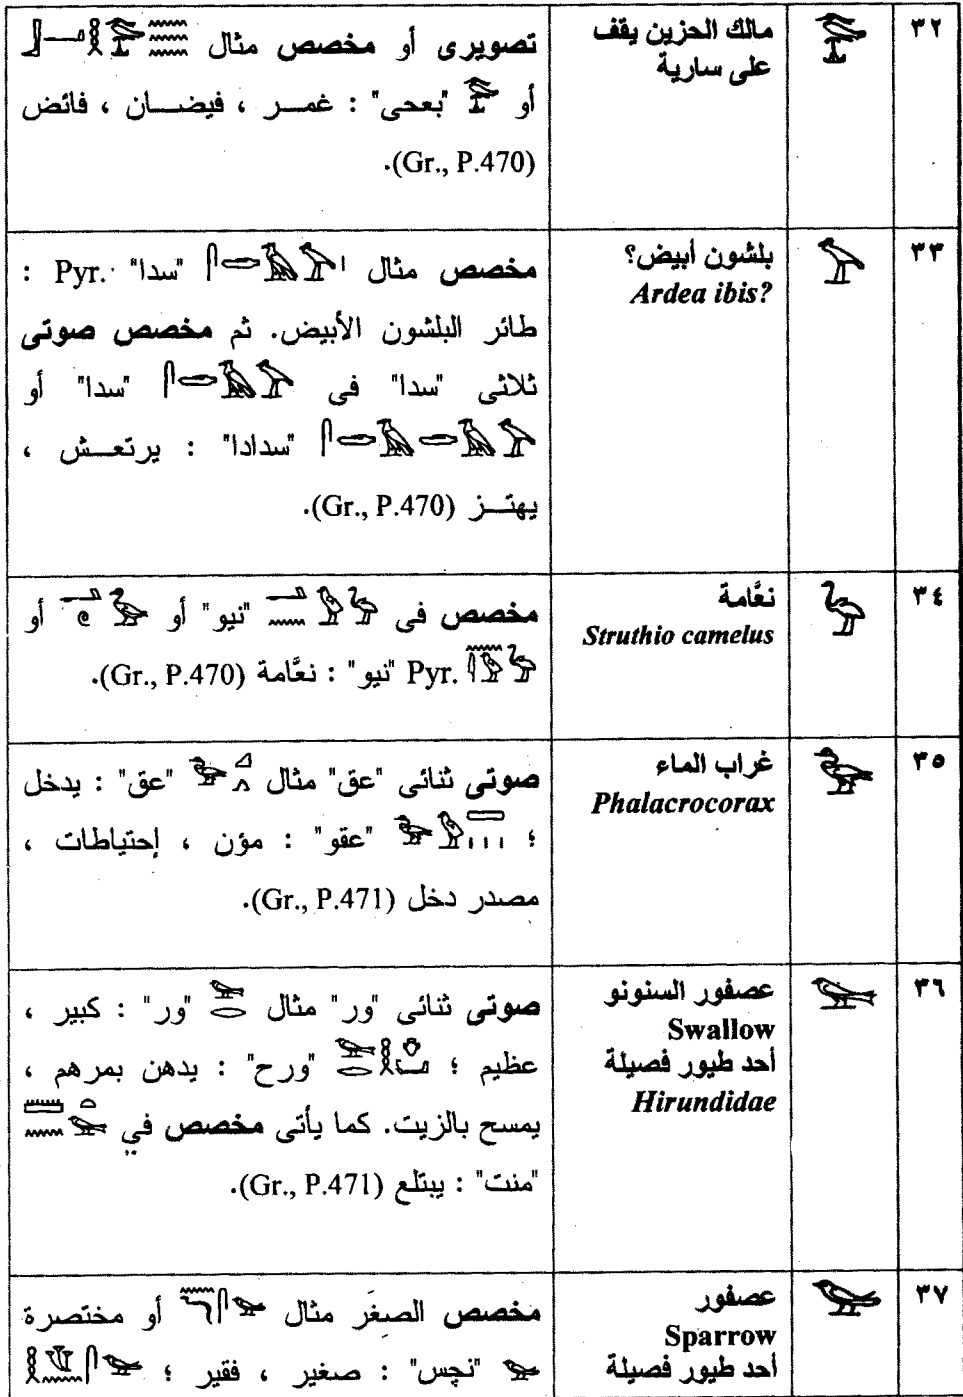 ٣٢
مالك الحزين يقف
على سارية
تصويرى أو مخصص مثال
أو "بعحى" : غمــر ، فيضــان ، فائض
(Gr., P.470).
٣٣
بلشون أبيض؟
Ardea ibis?
مخصص مثال "سدا" Pyr. :
طائر البلشون الأبيض. ثم مخصص صوتى
ثلاثى "سدا" فى "سدا" أو
"سدادا" : يرتعــش ،
يهتــز (Gr., P.470).
٣٤
نعَّامة
Struthio camelus
مخصص فى "نيو" أو أو
Pyr. "نيو" : نعَّامة (Gr., P.470).
٣٥
غراب الماء
Phalacrocorax
صوتى ثنائى "عق" مثال "عق" : يدخل
؛ "عقو" : مؤن ، إحتياطات ،
مصدر دخل (Gr., P.471).
٣٦
عصفور السنونو
Swallow
أحد طيور فصيلة
Hirundidae
صوتى ثنائى "ور" مثال "ور" : كبير ،
عظيم ؛ "ورح" : يدهن بمرهم ،
يمسح بالزيت. كما يأتى مخصص في
"منت" : يبتلع (Gr., P.471).
٣٧
عصفور
Sparrow
أحد طيور فصيلة
مخصص الصغَر مثال أو مختصرة
"نچس" : صغير ، فقير ؛